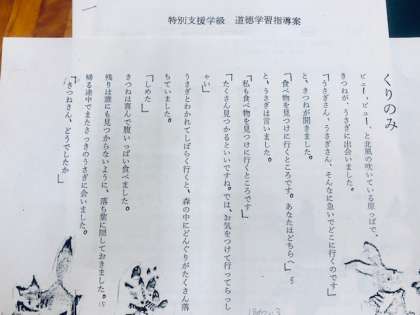 特別支援学級　道徳学習指導案
くりのみ
ビュー、ビュー、と北風の吹いている原っぱで、
きつねが、うさぎに出会いました。
「うさぎさん、うさぎさん、そんなに急いでどこに行くのです」
と、きつねが聞きました。
「食べ物を見つけに行くところです。あなたはどちらへ」
と、うさぎは言いました。
「私も食べ物を見つけに行くところです。」
「たくさん見つかるといいですね。では、お気をつけて行ってらっし
ゃい」
うさぎとわかれてしばらく行くと、森の中にどんぐりがたくさん落
ちていました。
「しめた」
きつねは喜んで腹いっぱい食べました。
残りは誰にも見つからないように、落ち葉に隠しておきました。
帰る途中でまたさっきのうさぎに会いました。
「きつねさん、どうでしたか」